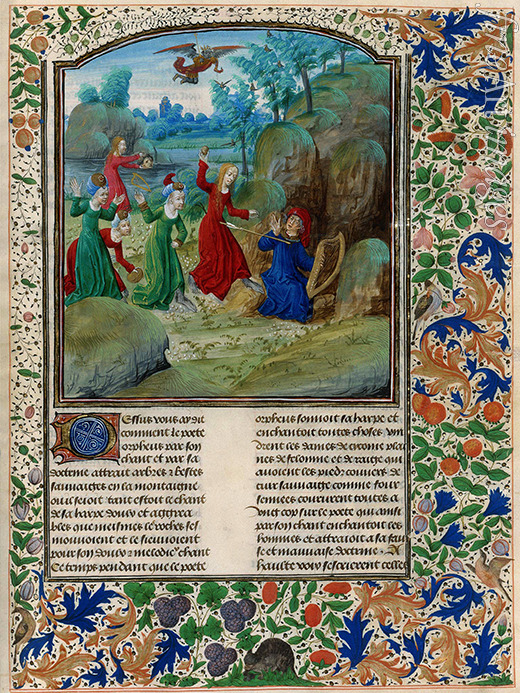 Dessus vous ay dit
comment le poete
orpheus par son
chant et par sa
doctrine attraioit arbres et bestes
sauuaiges en la montaigne
ou il seoit tant estoit le chant
de sa harpe doulx et aggrea
bles que mesmes les roches ses
mouuoient et le sieuuoient
pour son doulx et melodieux chant
Ce temps pendant que le poete
orpheus sonnoit sa harpe et
enchantoit toutes choses
les dames de cyconie plai
nes de felonnie et de raige qui
auoient les piedz couuers de
cuir sauuaige comme four
senees coururent toutes a
vng cop sur le poete qui ainsi
par son chant enchantoit les
hommes et attraioit a sa faul
se et mauuaise doctrine A
haulte voix sescrierent celles